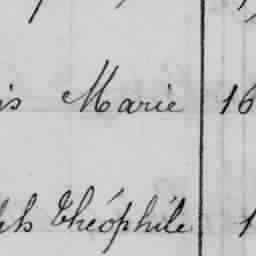 is Marie 16
ph Théophile 1